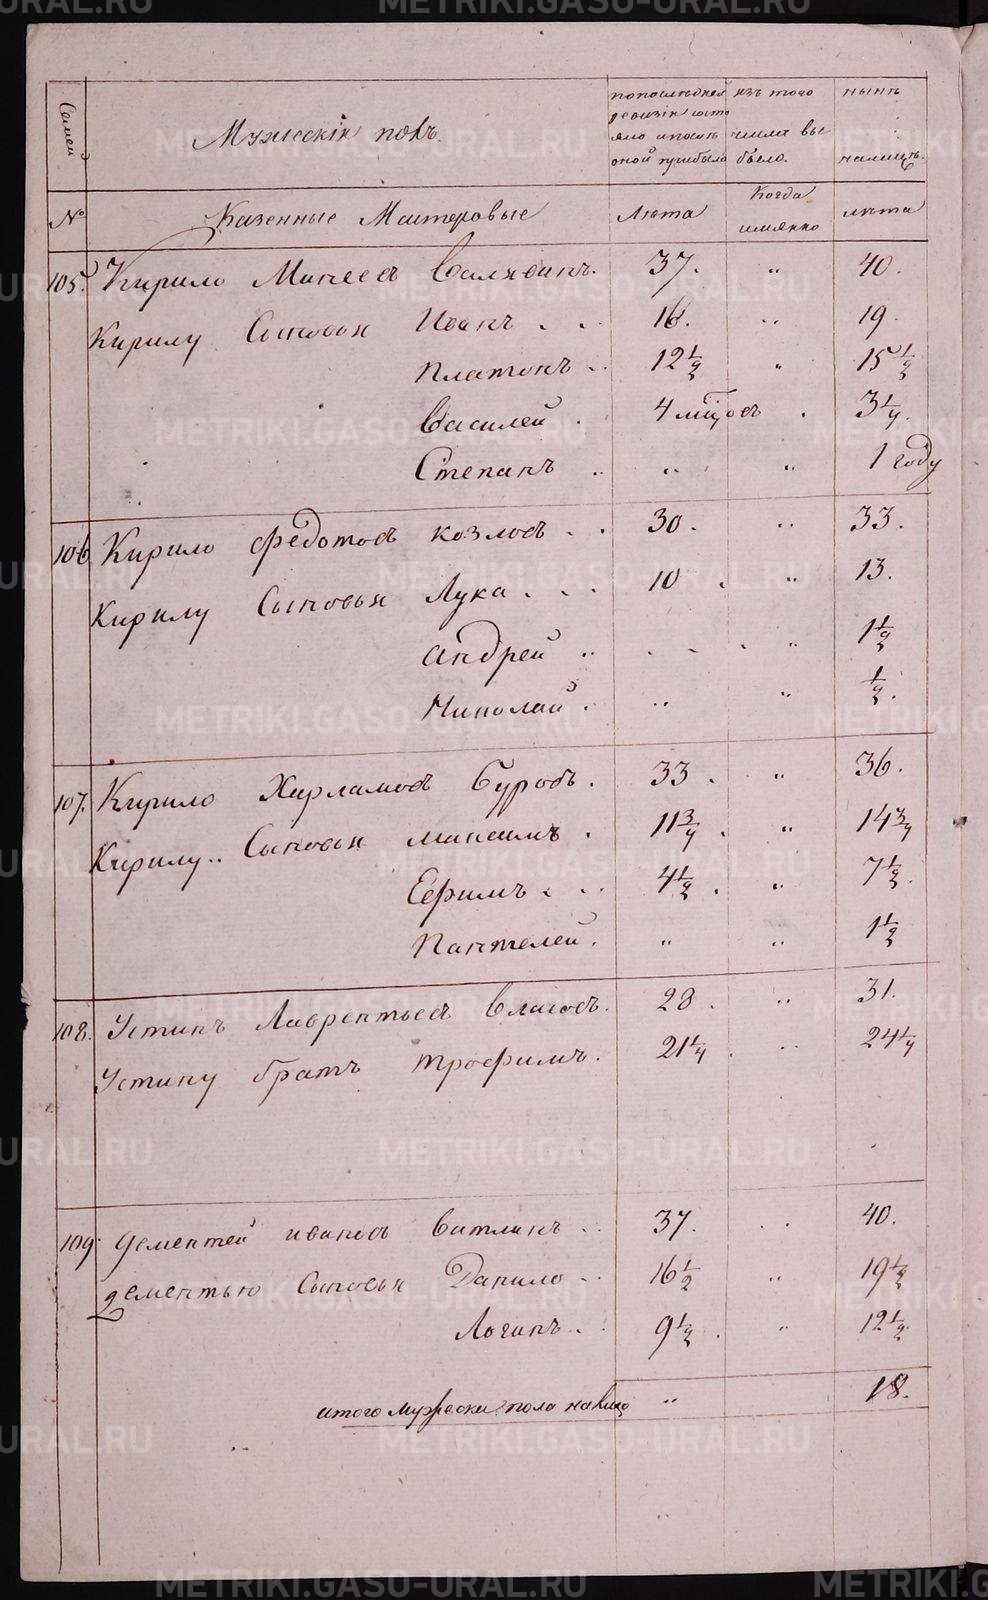 Семей
Мужескiй полъ.
попоследней ревизiи состояло ипосле оной прибыло
изъ того числа выбыло.
ныне налицо.
№
Казенные Мастеровые
Лета
Когда имянно
лета
105. Кирило Минеевъ Валявинъ. 37. " 40.
Кирилу Сыновья Иванъ . . 16. " 19.
Платонъ . 12 1/2 " 15 1/2
Василей . 4 мцовъ . 3 1/4.
Степанъ . " " 1 году
106 Кирило Федотовъ козловъ . 30. " 33.
Кирилу Сыновья Лука . . . 10 . " 13.
андрей . . . . " 1 1/2
Николай . " " 1/2.
107. Кирило Харламовъ Буровъ . 33 . " 36.
Кирилу Сыновья максимъ . 11 3/4 . " 14 3/4
Ефимъ . . 4 1/2 . " 7 1/2.
Пантелей . " " 1 1/2
108. Устинъ Лаврентьевъ власовъ. 28 . " 31.
Устину братъ трофимъ . 21 1/4 . " 24 1/4
109. дементей ивановъ ватлинъ . 37. " 40.
дементью Сыновья Данило . 16 1/2 " 19 1/2
Логинъ . . 9 1/2 . " 12 1/2
итого мужеска пола налицо " 18.
METRIKI.GASO-URAL.RU